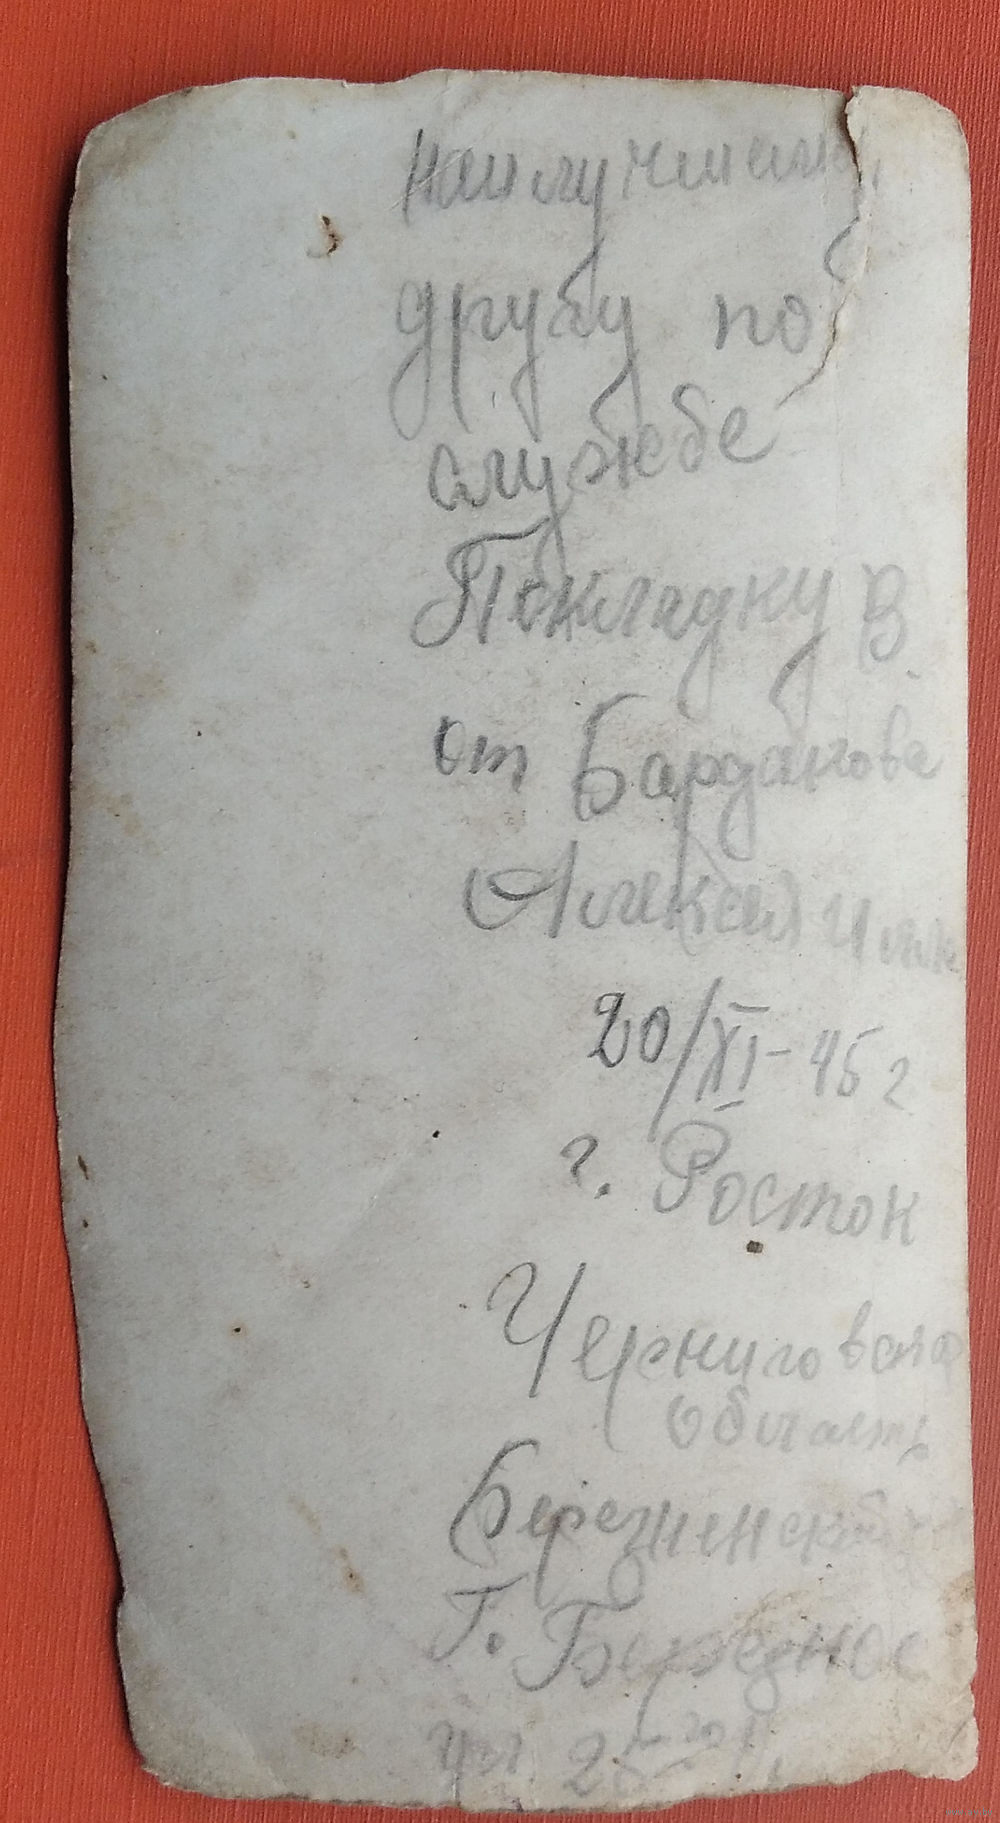 Наилучшему
другу по
службе
Покладку В.
от Барданова
Алексея
20/XI-45 г
г. Росток
Черниговская
область
Березненский
г. Березное